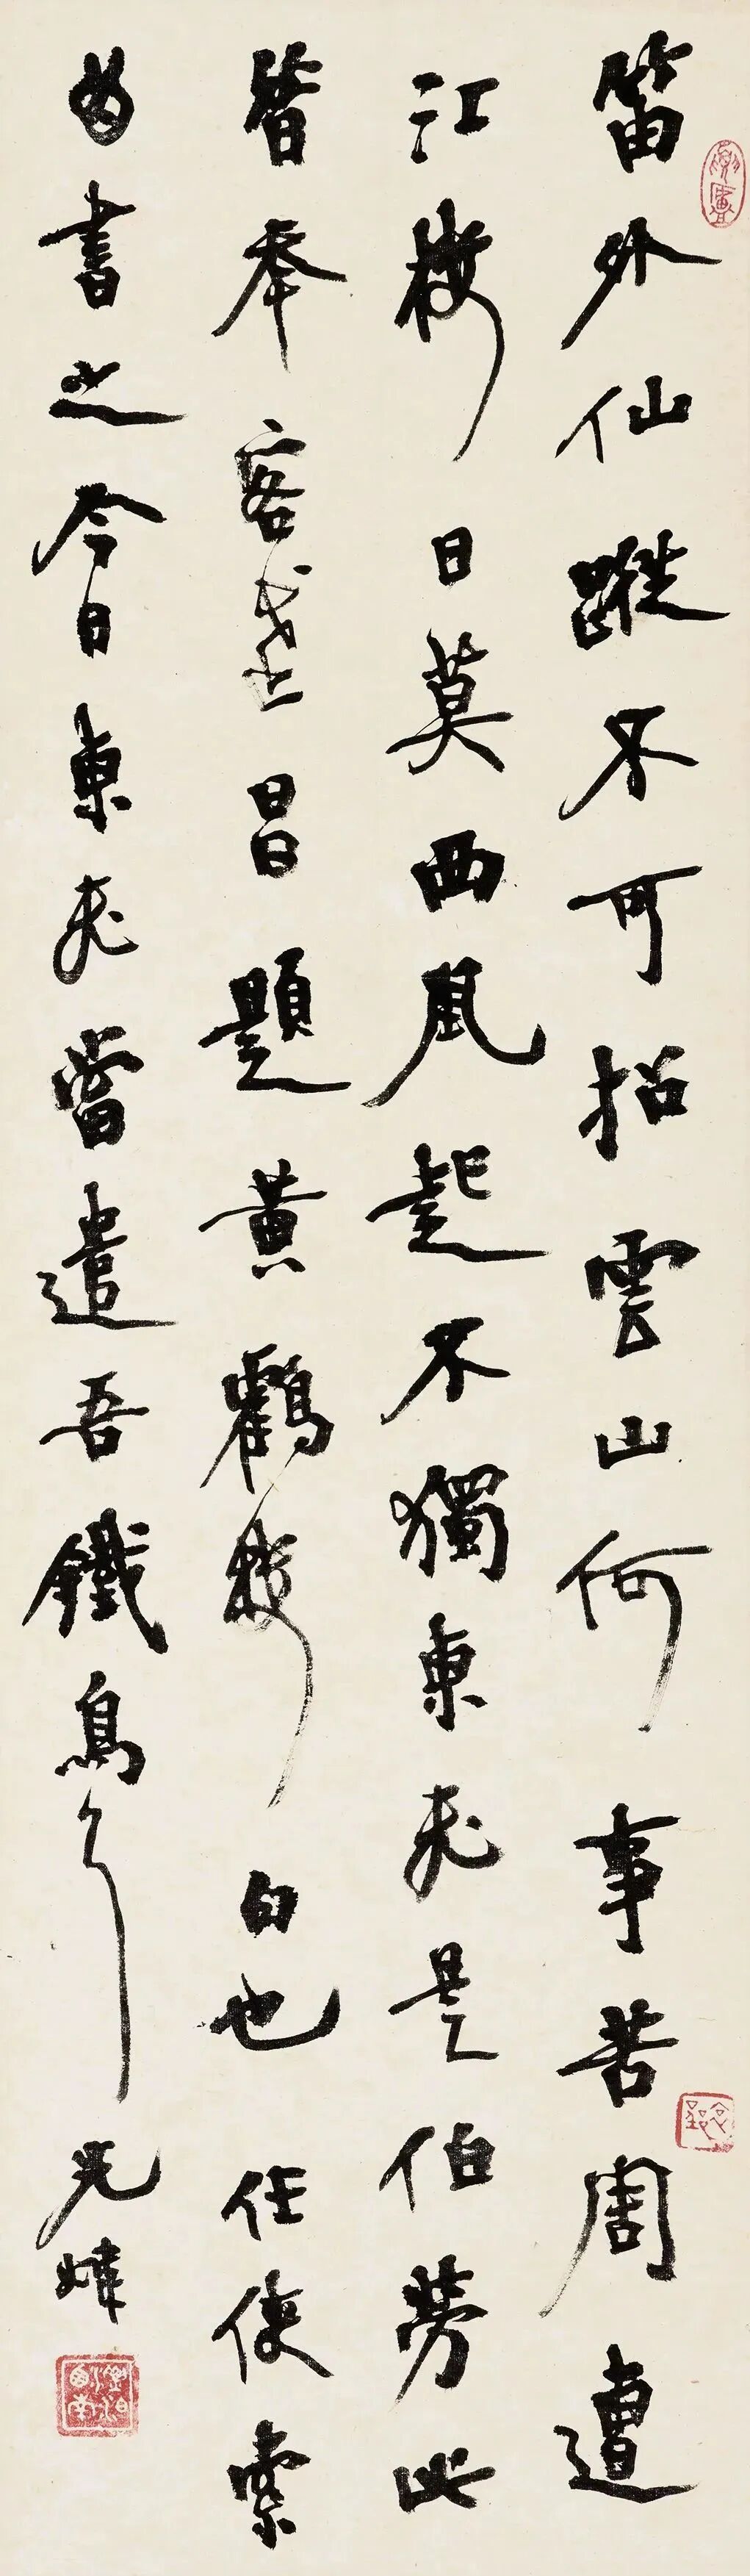 笛外仙蹤不可招雲山何事苦周遭
江樓日莫西風起不獨東飛是伯勞此
昔年客武昌題黃鶴樓句也任使索
書之今日東飛當遣吾鐵鳥耳光煒